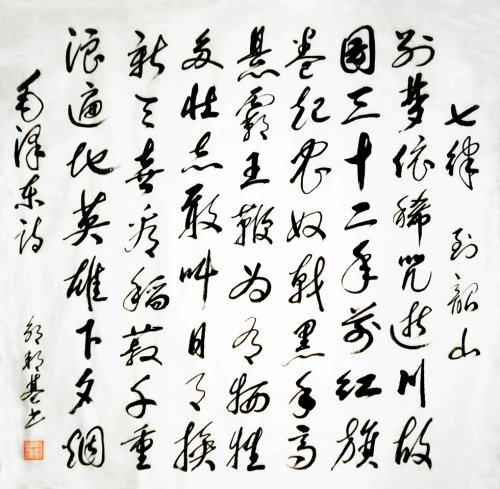 七律 到韶山
别梦依稀咒逝川故
園三十二年前红旗
卷起农奴戟黑手高
悬霸王鞭为有牺牲
多壮志敢叫日月换
新天喜看稻菽千重
浪遍地英雄下夕烟
毛泽东诗
基书